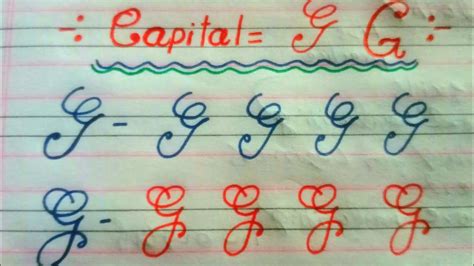 ÷ Capital = G G ÷
G - G G G G
G - G G G G